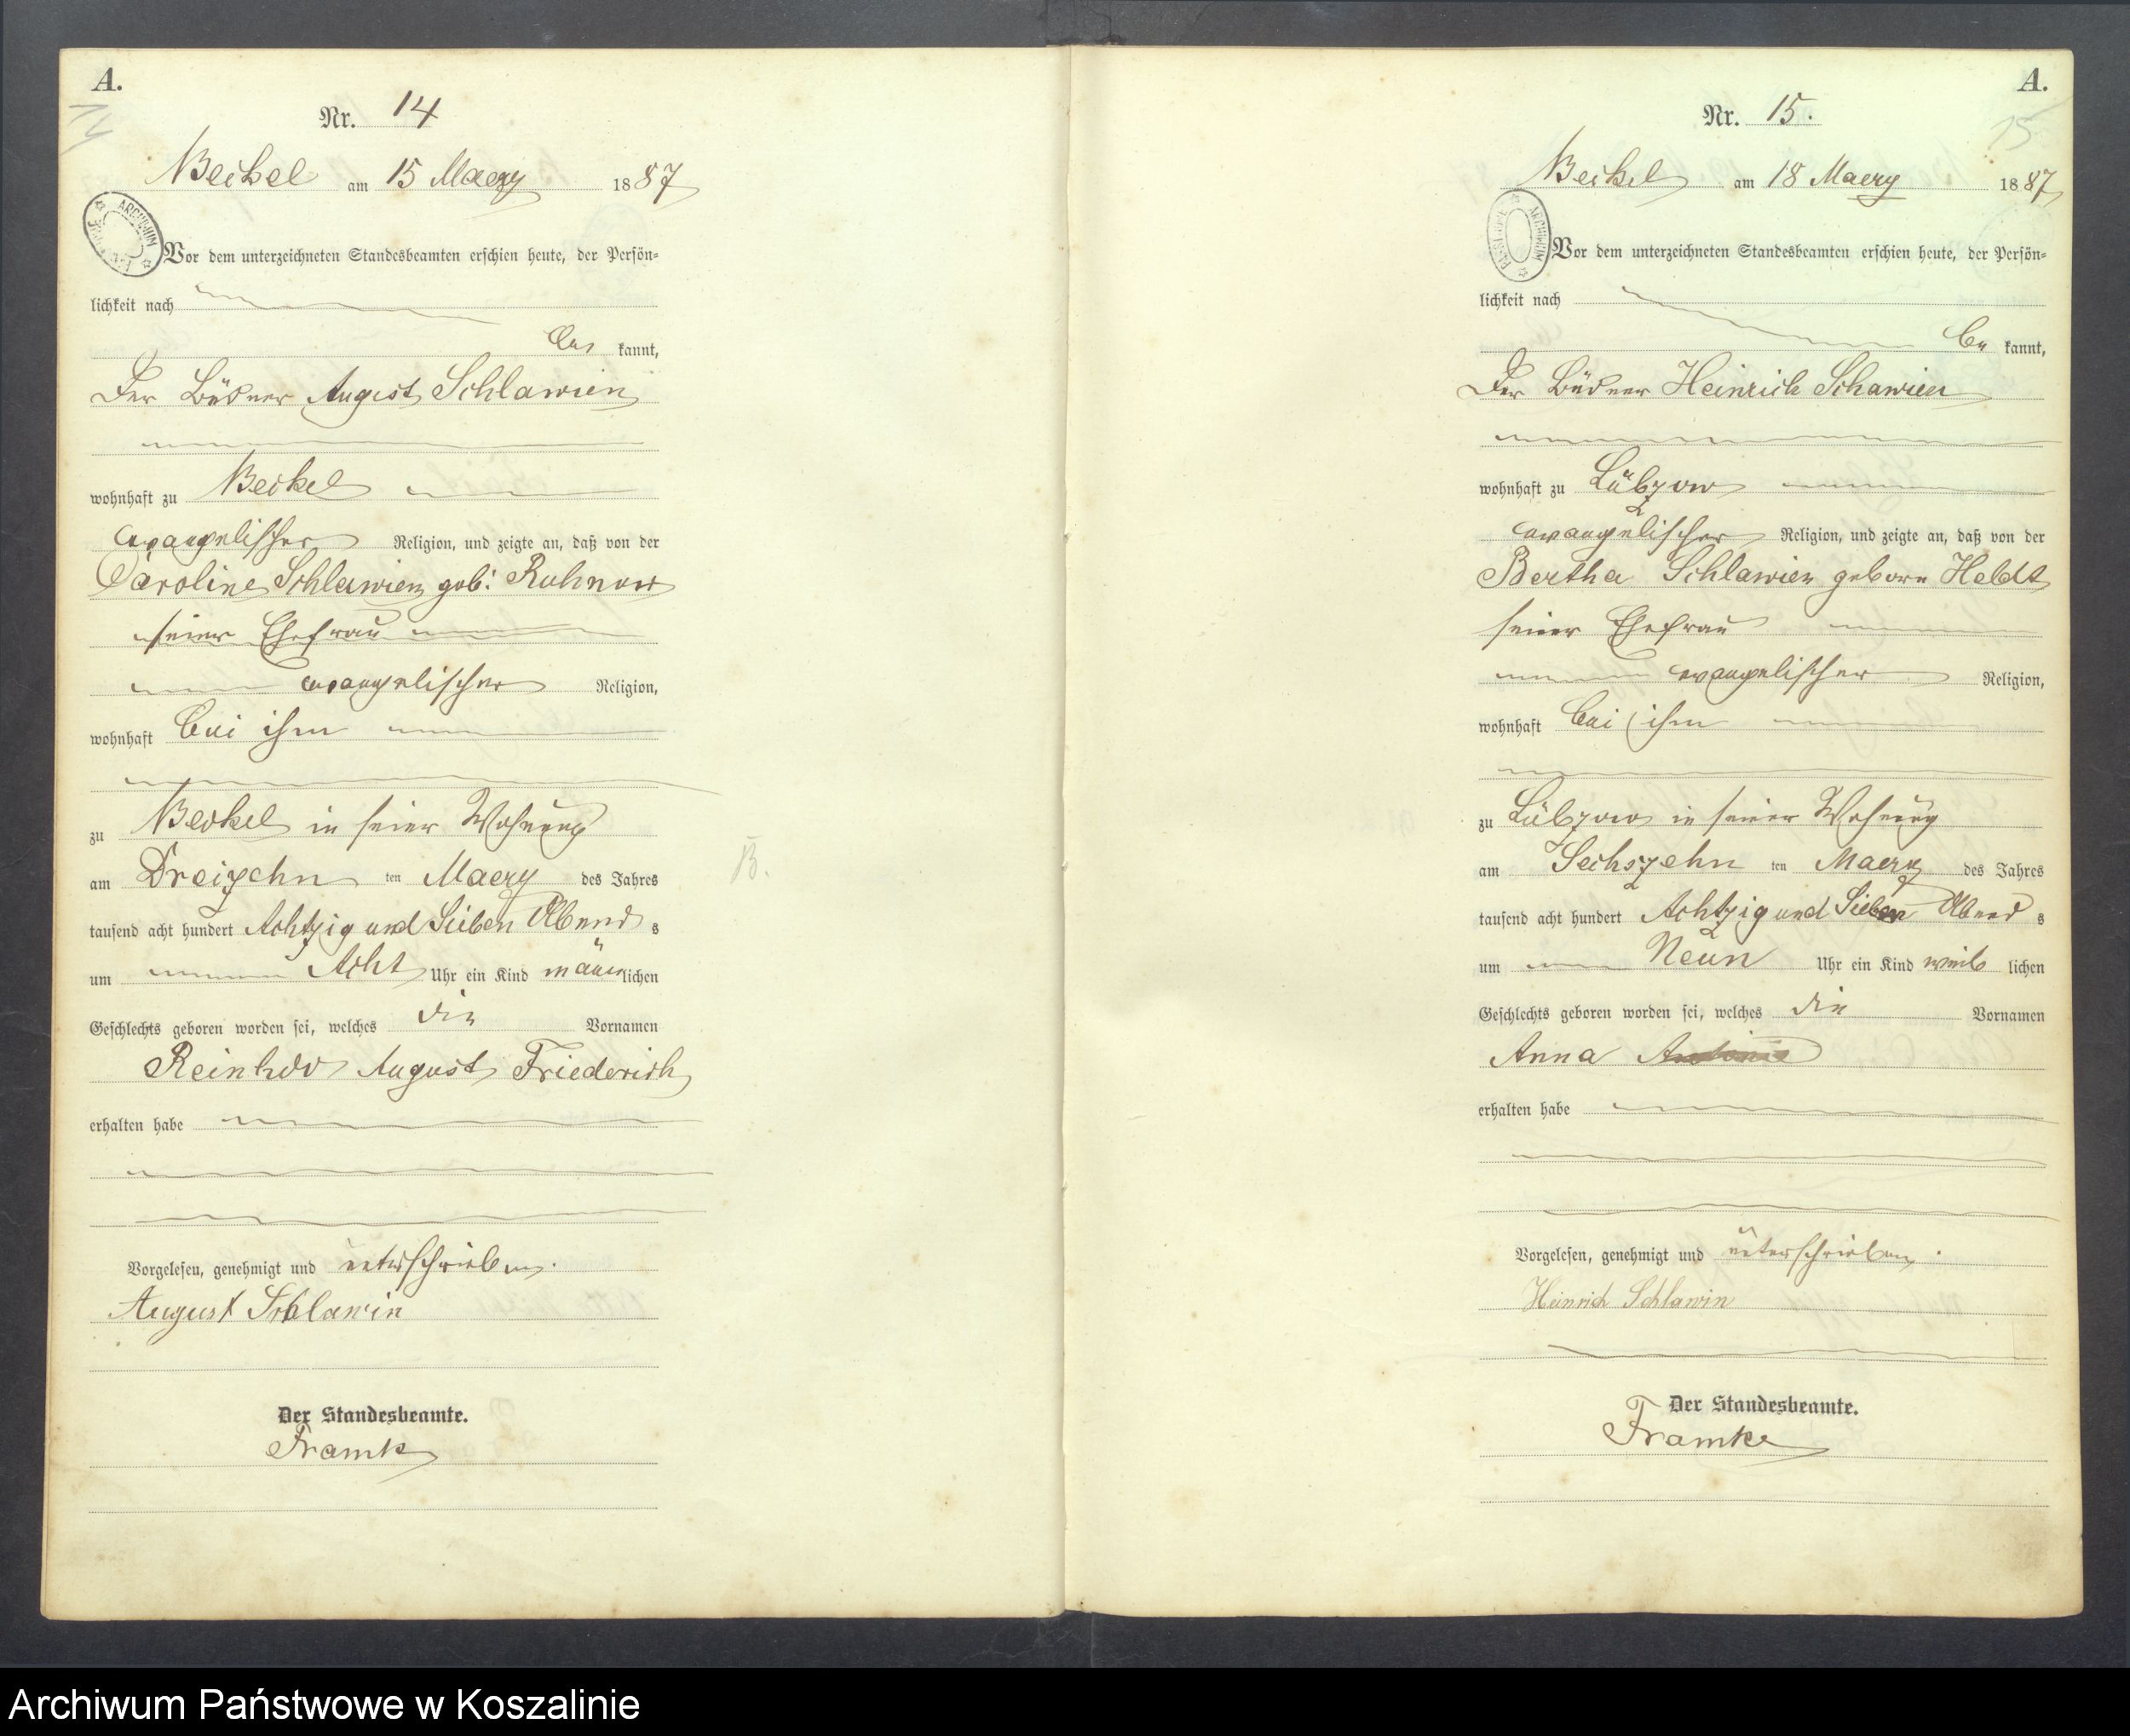 A.
14
Nr. 14
Beckel am 15 Maerz 1887
Vor dem unterzeichneten Standesbeamten erschien heute, der Persön-
lichkeit nach
be kannt,
Der Büdner August Schlawien
wohnhaft zu Beckel
evangelischer Religion, und zeigte an, daß von der
Caroline Schlawien geb: Ruhnow
seiner Ehefrau
evangelischer Religion,
wohnhaft bei ihm
zu Beckel in seiner Wohnung
am Dreizehn ten Maerz des Jahres
tausend acht hundert Achtzig und Sieben Abend s
um Acht Uhr ein Kind männlichen
Geschlechts geboren worden sei, welches die Vornamen
August Friederich
erhalten habe
Vorgelesen, genehmigt und unterschrieben.
August Schlawin
Der Standesbeamte.
Framke
B.
A.
15
Nr. 15.
Beckel am 18 Maerz 1887
ARCHIWUM
Vor dem unterzeichneten Standesbeamten erschien heute, der Persön-
lichkeit nach
be kannt,
Der Büdner Heinrich Schawien
wohnhaft zu Lübzow
evangelischer Religion, und zeigte an, daß von der
Bertha Schlawien geborn Heldt
seiner Ehefrau
evangelischer Religion,
wohnhaft bei ihm
zu Lübzow in seiner Wohnung
am Sechszehn ten Maerz des Jahres
tausend acht hundert Achtzig und Sieben Abend s
um Neun Uhr ein Kind weib lichen
Geschlechts geboren worden sei, welches die Vornamen
Anna
erhalten habe
Vorgelesen, genehmigt und unterschrieben.
Heinrich Schlawin
Der Standesbeamte.
Framke
Archiwum Państwowe w Koszalinie